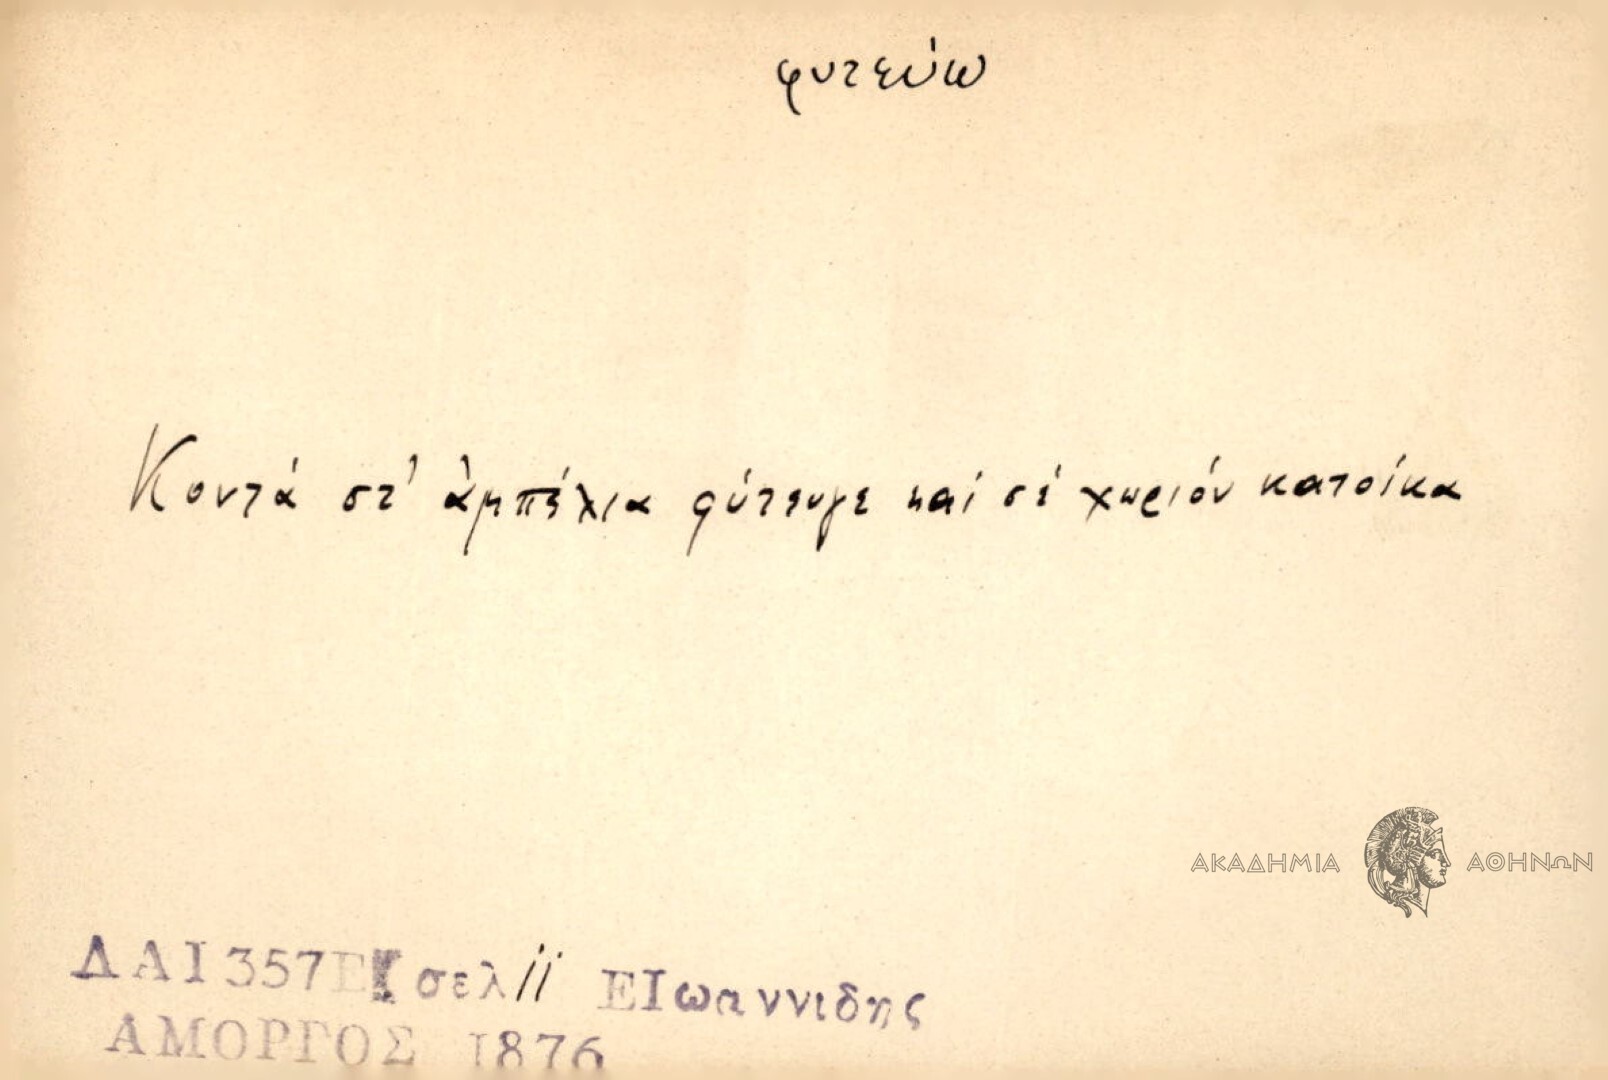 φυτεύω
Κοντά στ' ἀμπέλια φύτευγε καί σέ χωριόν κατοίκα
ΑΚΑΔΗΜΙΑ ΑΘΗΝΩΝ
ΔΑΙ357Ε σελ 11 ΕΙωαννιδης
ΑΜΟΡΓΟΣ 1876